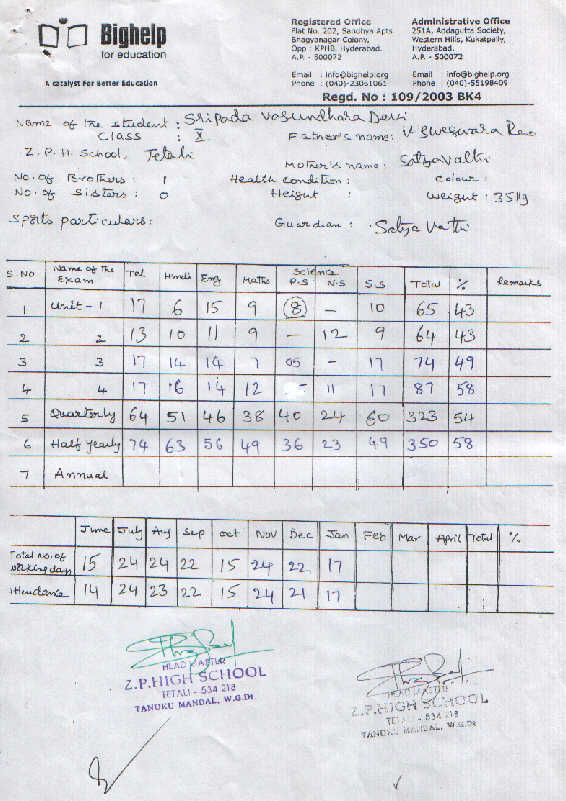 Bighelp
for education
A catalyst For Better Education
Registered Office
Flat No. 202, Sandhya Apts
Bhagyanagar Colony,
Opp : KPHB, Hyderabad.
A.P. - 500072
Email : info@bighelp.org
Phone : (040)-23061061
Administrative Office
251A, Addagutta Society,
Western Hills, Kukatpally,
Hyderabad.
A.P. - 500072
Email : info@bighelp.org
Phone (040)-55198409
Regd. No : 109/2003 BK4
Name of the student : Sripada Vasundhara Devi
Class : X
Father's name:
Z.P.H. School, Tetali
Mother's name: Satyavathi
No. of Brothers : 1 Health condition : Colour :
No. of Sisters : 0 Height : Weight : 35 Kg
Sports particulars: Guardian : Satya Vathi
S No Name of the Exam Tel Hindi Eng Maths Science P.S N.S S.S Total % Remarks
1 Unit - 1 17 6 15 9 8 - 10 65 43
2 2 13 10 11 9 - 12 9 64 43
3 3 17 14 14 7 05 - 17 74 49
4 4 17 16 14 12 - 11 17 87 58
5 Quarterly 64 51 46 38 40 24 60 323 54
6 Half yearly 74 63 56 49 36 23 49 350 58
7 Annual
June July Aug Sep Oct Nov Dec Jan Feb Mar April Total %
Total no. of working days 15 24 24 22 15 24 22 17
Attendance 14 24 23 22 15 24 21 17
HEAD MASTER
Z.P.HIGH SCHOOL
TETALI - 534 218
TANUKU MANDAL, W.G.Dt
HEAD MASTER
Z.P.HIGH SCHOOL
TETALI - 534 218
TANUKU MANDAL, W.G.Dt